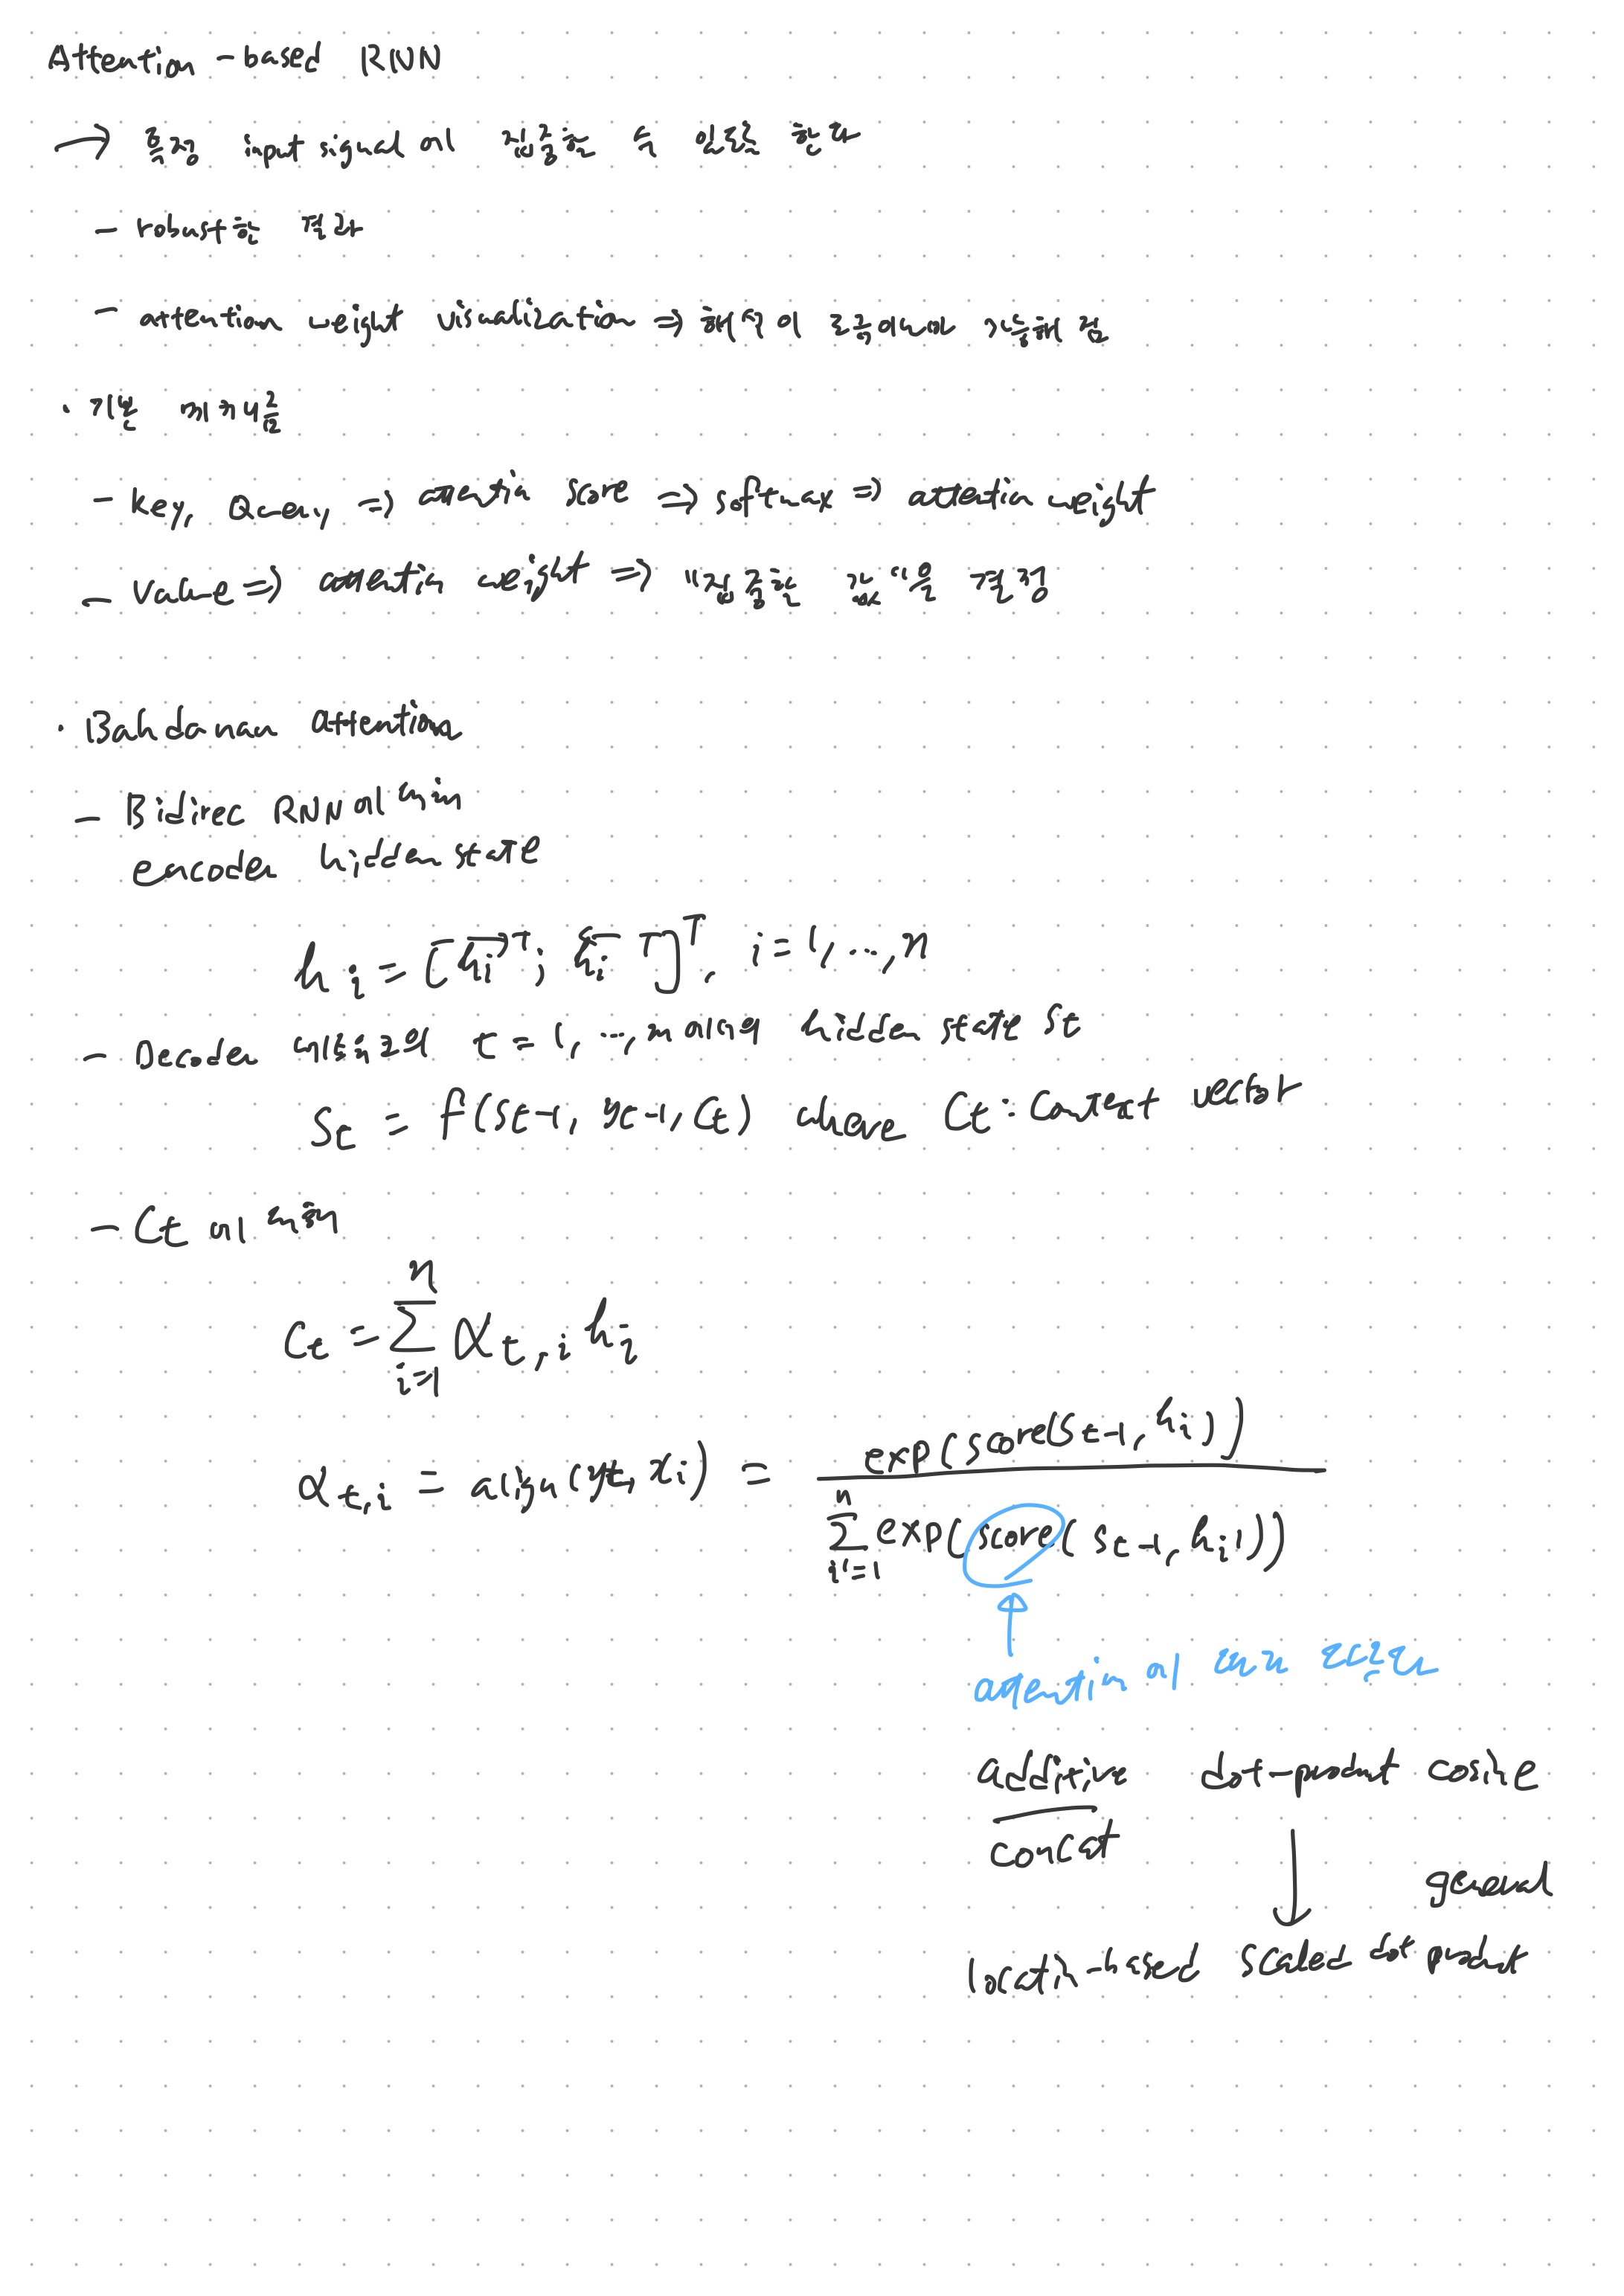 Attention-based RNN
→ 특정 input signal에 집중할 수 있도록 한다
- robust한 결과
- attention weight visualization ⇒ 해석이 조금이나마 가능해 짐
· 기본 메커니즘
- key, Query ⇒ attention score ⇒ softmax ⇒ attention weight
- value ⇒ attention weight ⇒ "집중한 값"을 결정
· Bahdanau attention
- Bidirec RNN에
encoder hidden state
h_i = [\overrightarrow{h_i}^T; \overleftarrow{h_i}^T]^T, i = 1, ..., n
- Decoder t = 1, ..., m에서의 hidden state s_t
s_t = f(s_{t-1}, y_{t-1}, c_t) where c_t : context vector
- c_t에 대해
c_t = \sum_{i=1}^{n} α_{t,i} h_i
α_{t,i} = align(y_t, x_i) = \frac{exp(score(s_{t-1}, h_i))}{\sum_{i'=1}^{n} exp(score(s_{t-1}, h_{i'}))}
attention에 따라
additive dot-product cosine
concat
general
location-based scaled dot product